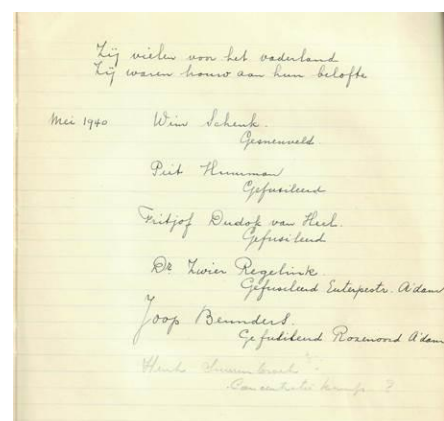 Zij vielen voor het vaderland
Zij waren trouw aan hun belofte
Mei 1940 Wim Schenk.
Gesneuveld
Piet
Gefusileerd
Fritjof Dudok van Heel.
Gefusileerd
Dr Zwier Regelink.
Gefusileerd Euterpestr. A'dam
Joop Beunders.
Gefusileerd Rozenoord A'dam
Henk
Concentratie kamp ?